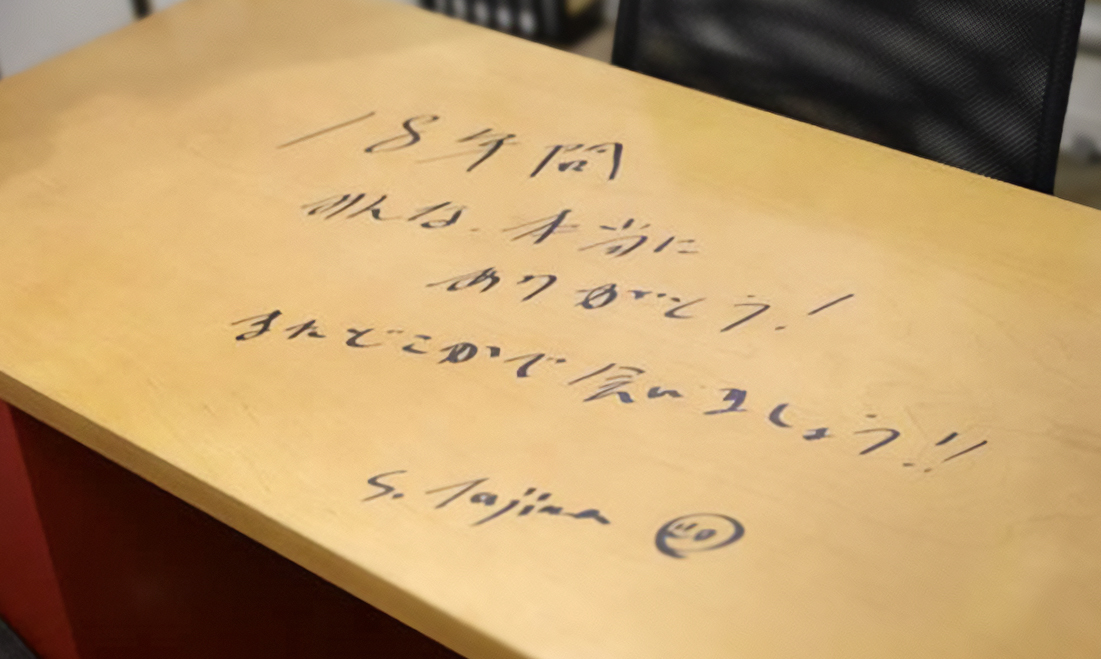 18年間
みんな、本当に
ありがとう!
またどこかで会いましょう!!
S. Tajima